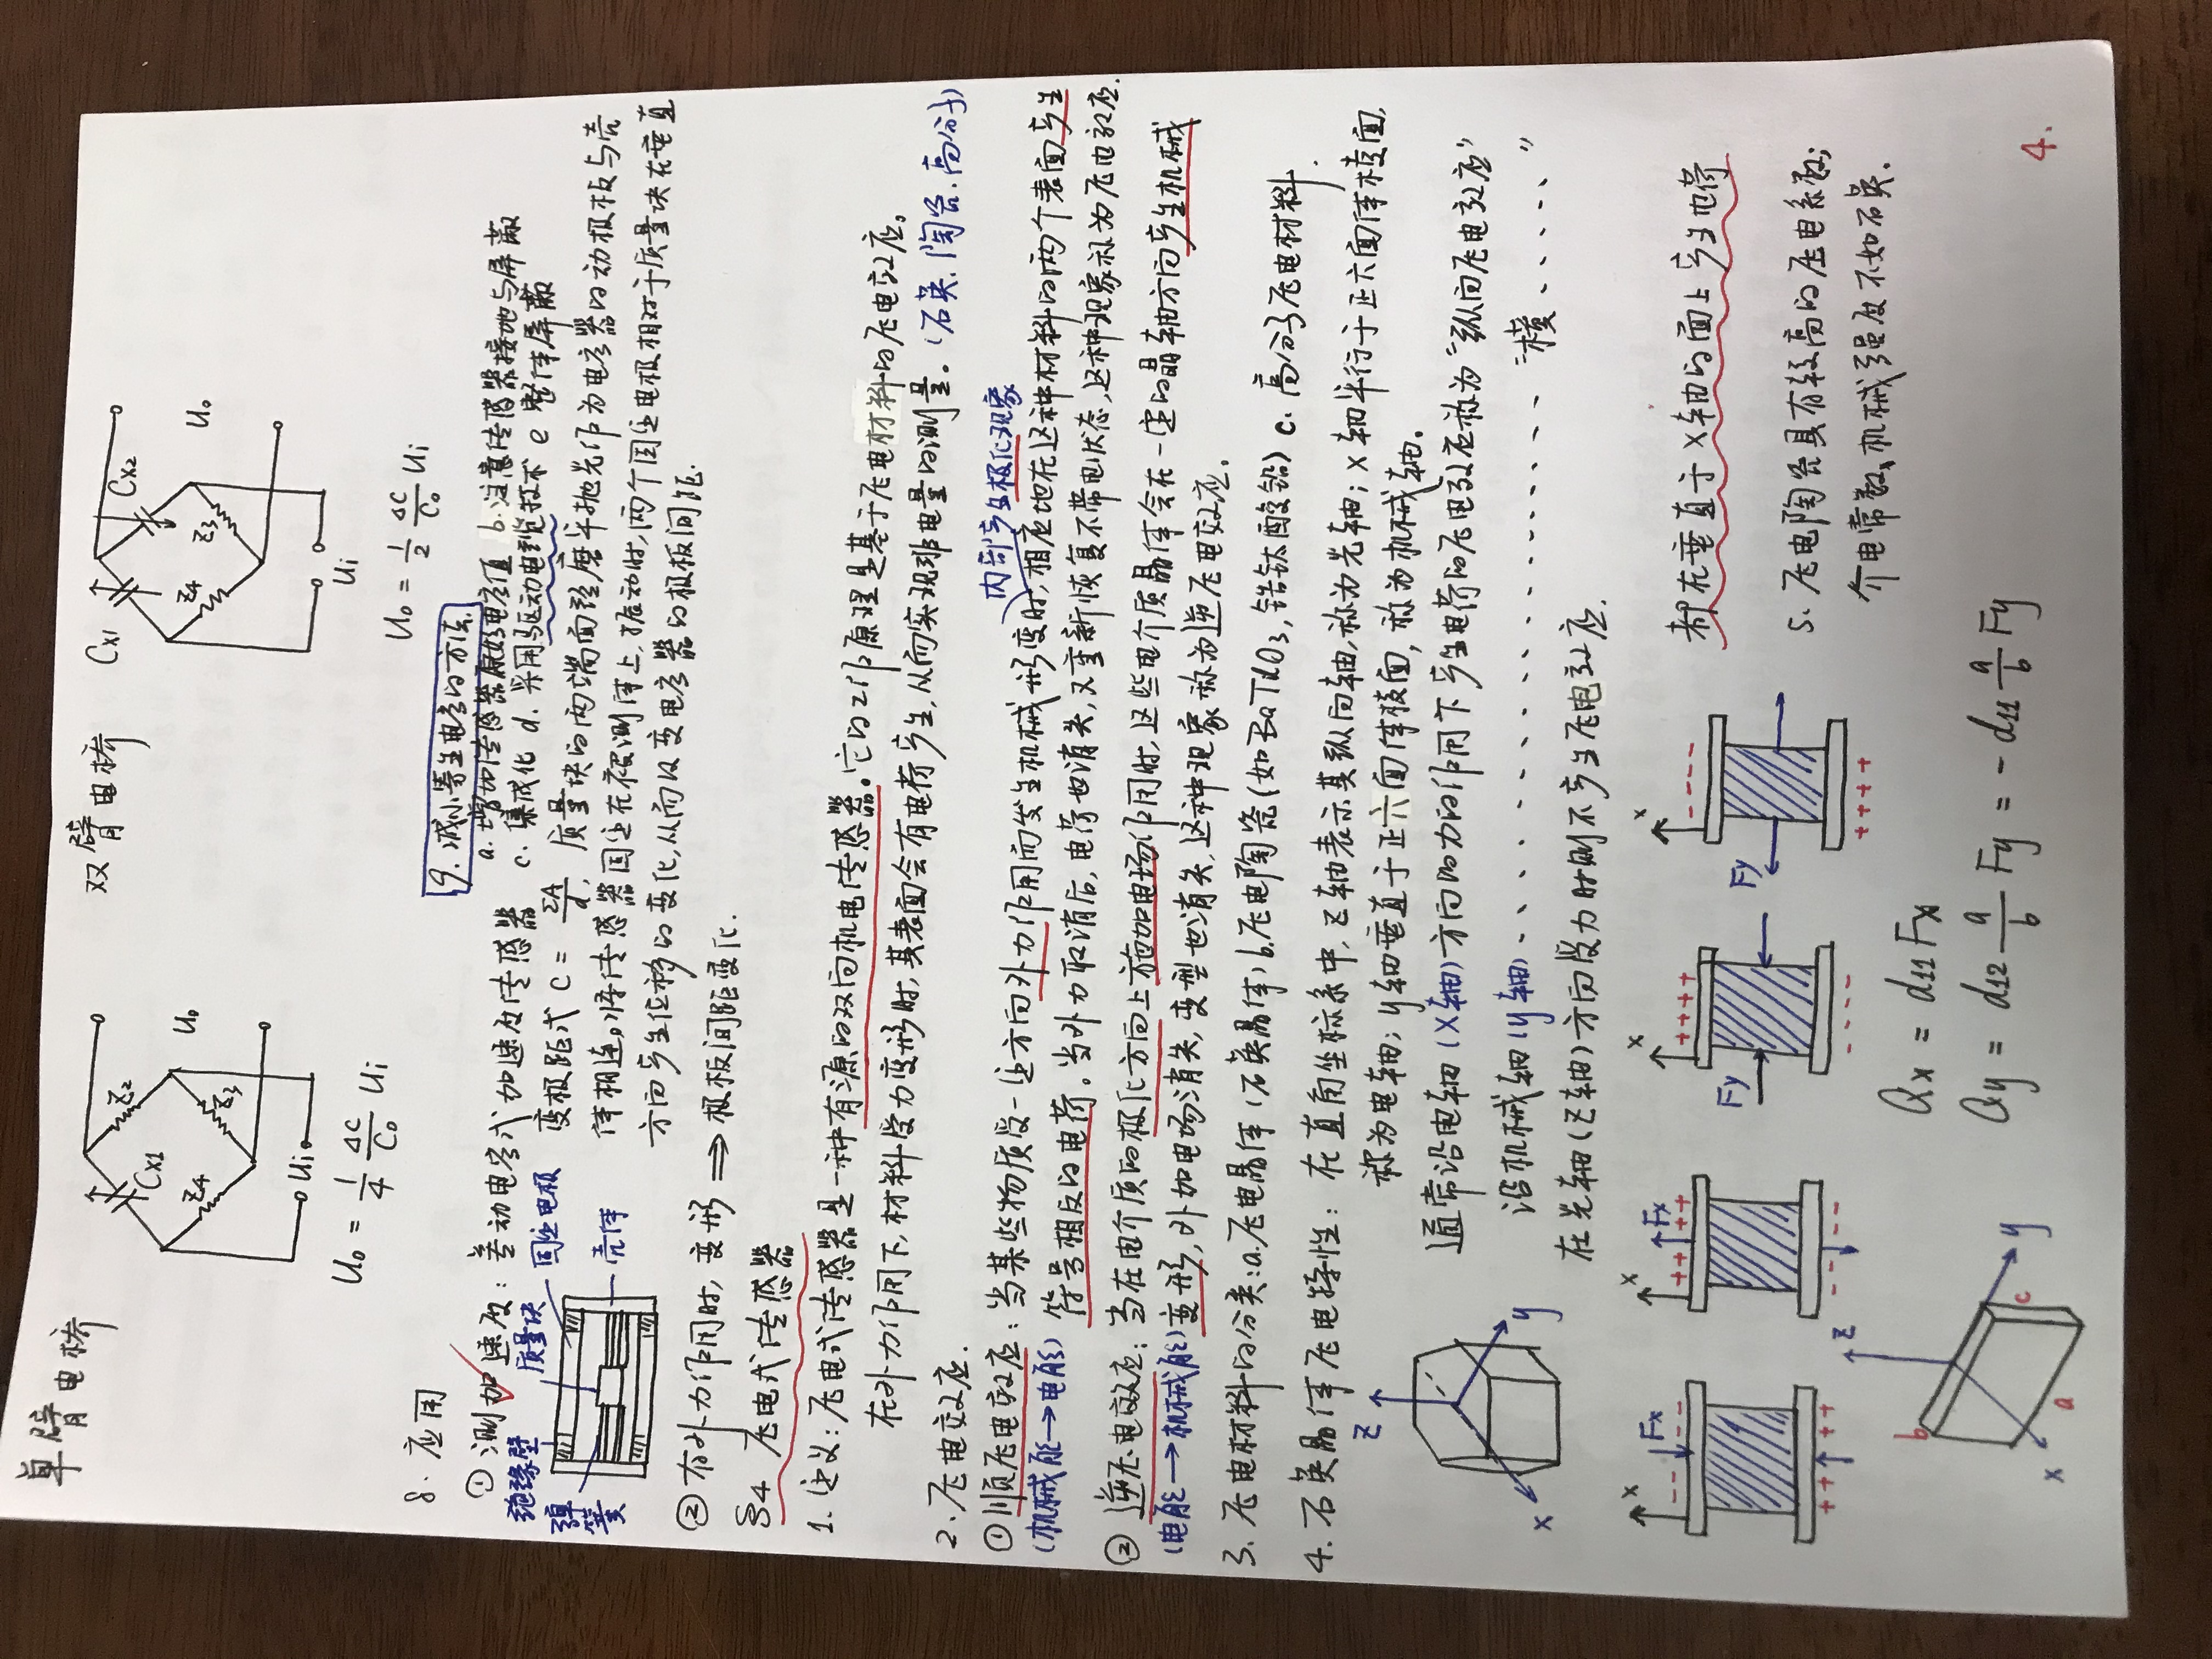 单臂电桥
Cx1
Z2
Z4
Z3
U0
Ui
U0 = 1/4 ΔC/C0 Ui
双臂电桥
Cx1
Cx2
Z4
Z3
U0
Ui
U0 = 1/2 ΔC/C0 Ui
8. 应用
9. 减小寄生电容的方法.
a. 增加传感器原始电容值 b. 注意传感器接地与屏蔽
c. 集成化 d. 采用驱动电缆技术 e 整体屏蔽
① 测加速度: 差动电容式加速度传感器
绝缘壁
质量块
固定电极
弹簧
壳体
变极距式 C = ΣA/d, 质量块的两端面经磨平抛光作为电容器的动极板与壳
体相连。将传感器固定在被测体上, 振动时, 两个固定电极相对于质量块在垂直
方向产生位移的变化, 从而改变电容器的极板间距.
② 有外力作用时, 变形 ⟹ 极板间距变化.
§4 压电式传感器
1. 定义: 压电式传感器是一种有源的双向机电传感器。它的工作原理是基于压电材料的压电效应。
在外力作用下, 材料受力变形时, 其表面会有电荷产生, 从而实现非电量的测量。(石英. 陶瓷. 高分子)
2. 压电效应.
内部产生极化现象
① 顺压电效应: 当某些物质受一定方向外力作用而发生机械形变时, 相应地在这种材料的两个表面产生
(机械能→电能) 符号相反的电荷。当外力取消后, 电荷也消失, 又重新恢复不带电状态, 这种现象称为压电效应.
② 逆压电效应: 当在电介质的极化方向上施加电场作用时, 这些电介质晶体会在一定的晶轴方向产生机械
(电能→机械能) 变形, 外加电场消失, 变型也消失, 这种现象称为逆压电效应.
3. 压电材料的分类: a. 压电晶体 (石英晶体) b. 压电陶瓷 (如BaTiO3, 锆钛酸铅) c. 高分子压电材料.
4. 石英晶体压电特性: 在直角坐标系中, Z轴表示其纵向轴, 称为光轴; x轴平行于正六面体棱面,
称为电轴; y轴垂直于正六面体棱面, 称为机械轴.
通常沿电轴 (x轴) 方向的力的作用下产生电荷的压电效应称为“纵向压电效应”
沿机械轴 (y轴) ................... “横.....”
在光轴 (Z轴) 方向受力时则不产生压电效应.
Z
x
y
x
-- Fx --
++ ++
x
++ Fx ++
-- --
x
++++
Fy
----
x
----
Fy
++++
都在垂直于x轴的面上产生电荷
5. 压电陶瓷具有较高的压电系数;
介电常数、机械强度不如石英.
Z
b
c
y
x
a
Qx = d11 Fx
Qy = d12 a/b Fy = - d11 a/b Fy
4.